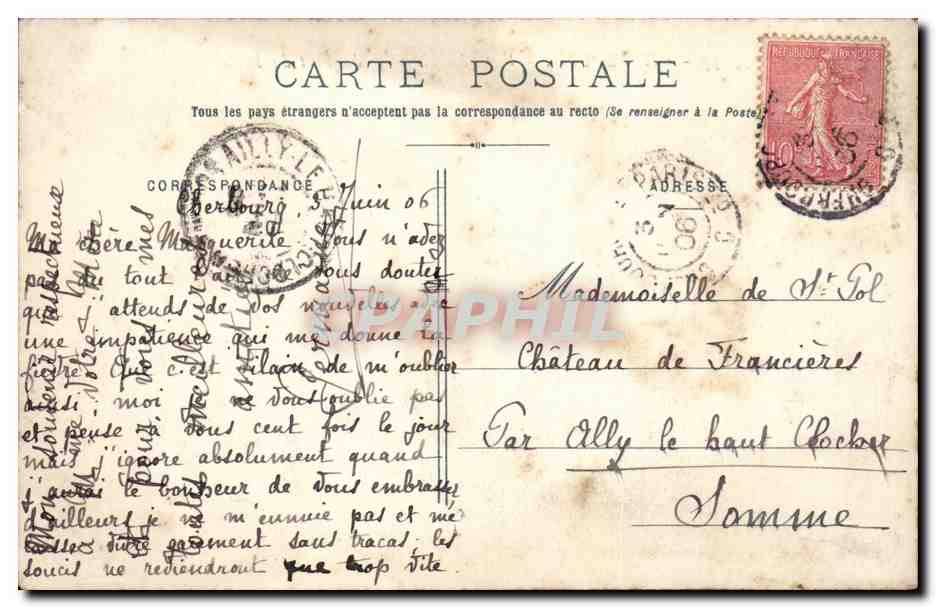 CARTE POSTALE
Tous les pays étrangers n'acceptent pas la correspondance au recto (Se renseigner à la Poste)
REPUBLIQUE FRANÇAISE
10
CORRESPONDANCE
ADRESSE
AILLY-LE-H CLOCHER
PARIS
CHERBOURG
Cherbourg, 3 Juin 06
Ma chère Marguerite Vous n'avez
pas du tout l'air de vous douter
que j'attends de vos nouvelles avec
une impatience qui me donne la
fièvre. Que c'est vilain de m'oublier
ainsi moi ne vous oublie pas
et pense à vous cent fois le jour
mais j'ignore absolument quand
j'aurai le bonheur de vous embrasser
d'ailleurs je ne m'ennuie pas et me
laisse vivre gaiement sans tracas; les
soucis ne reviendront que trop vite.
Mon souvenir respectueux
à Mme Votre Mère
et pour vous mes
plus meilleures
Germaine
Mademoiselle de St Pol
Château de Francières
Par Ailly le haut Clocher
Somme
PAPHIL